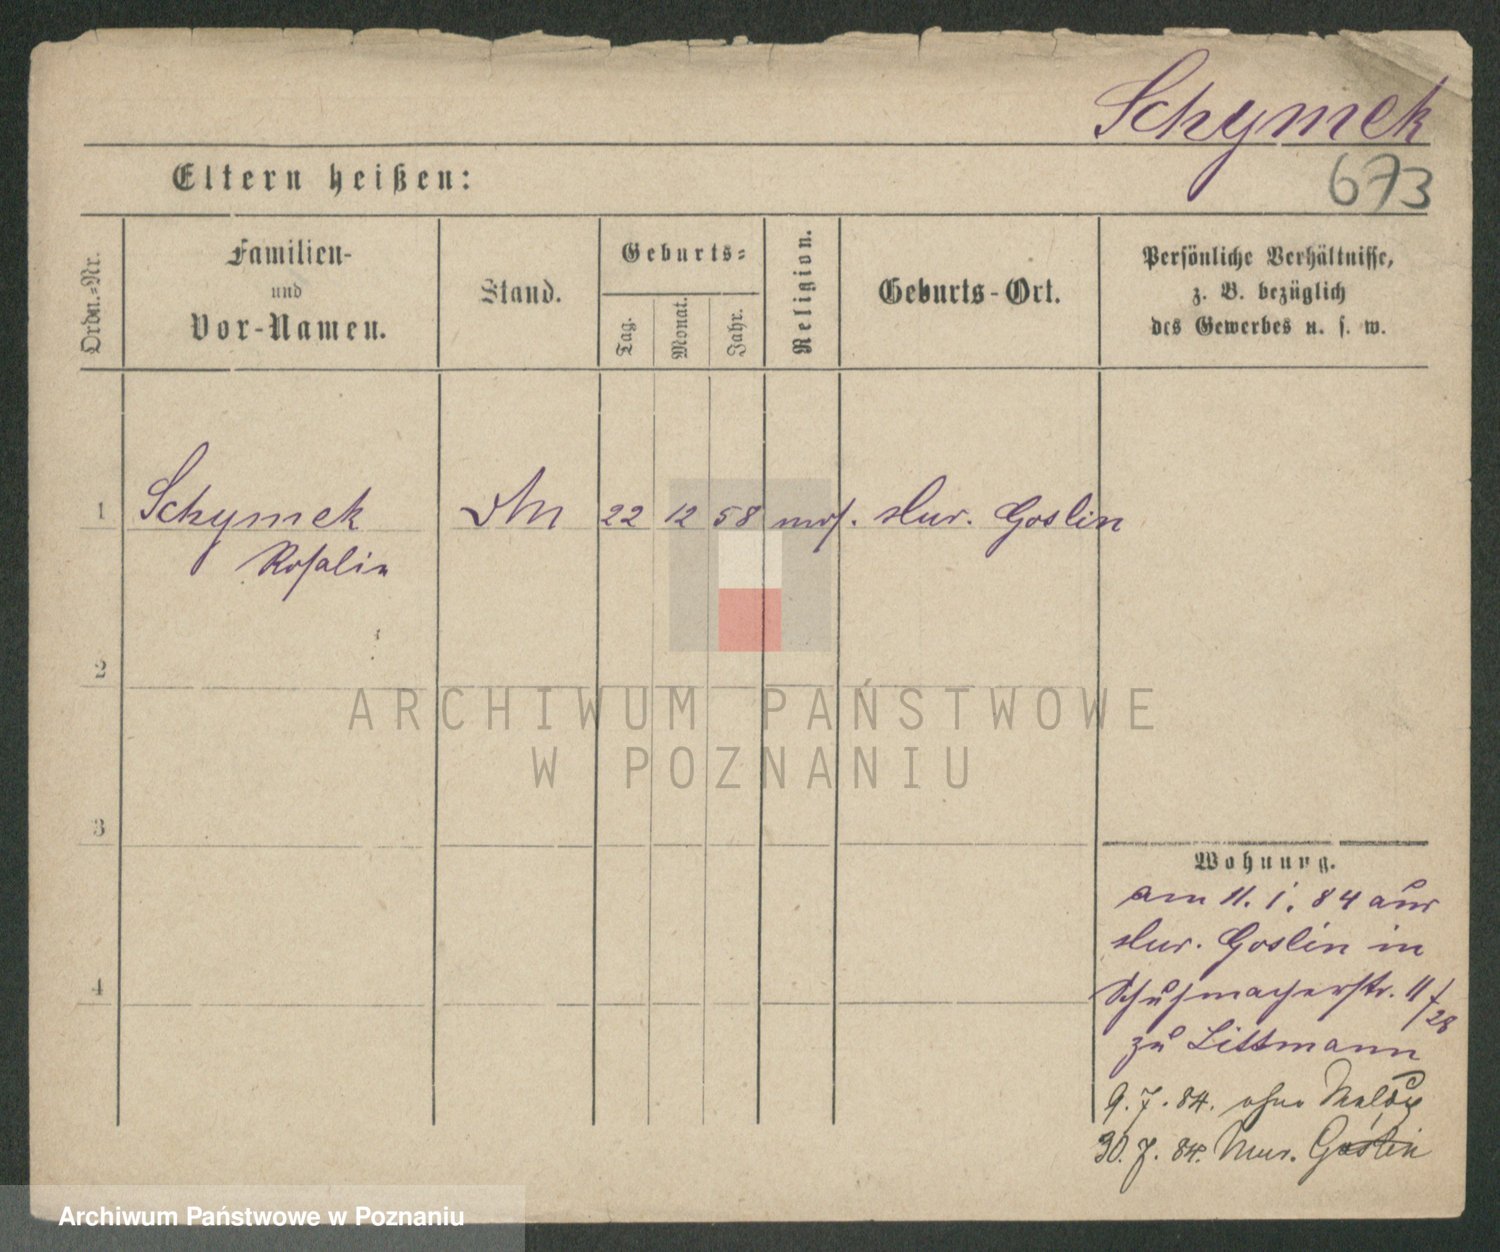 Schymek
673
Eltern heißen:
Ordn.-Nr.
Familien-
und
Vor-Namen.
Stand.
Geburts-
Tag.
Monat.
Jahr.
Religion.
Geburts-Ort.
Persönliche Verhältnisse,
z. B. bezüglich
des Gewerbes u. s. w.
1 Schymek 22 12 58 mos. Mur. Goslin
Rosalin
2
ARCHIWUM PAŃSTWOWE
W POZNANIU
3
Wohnung.
am 11. 1. 84 aus
Mur. Goslin in
4
Schuhmacherstr. 11/28
zu Littmann
9. 7. 84. ohne Meldg
30. 7. 84. Mur. Goslin
Archiwum Państwowe w Poznaniu